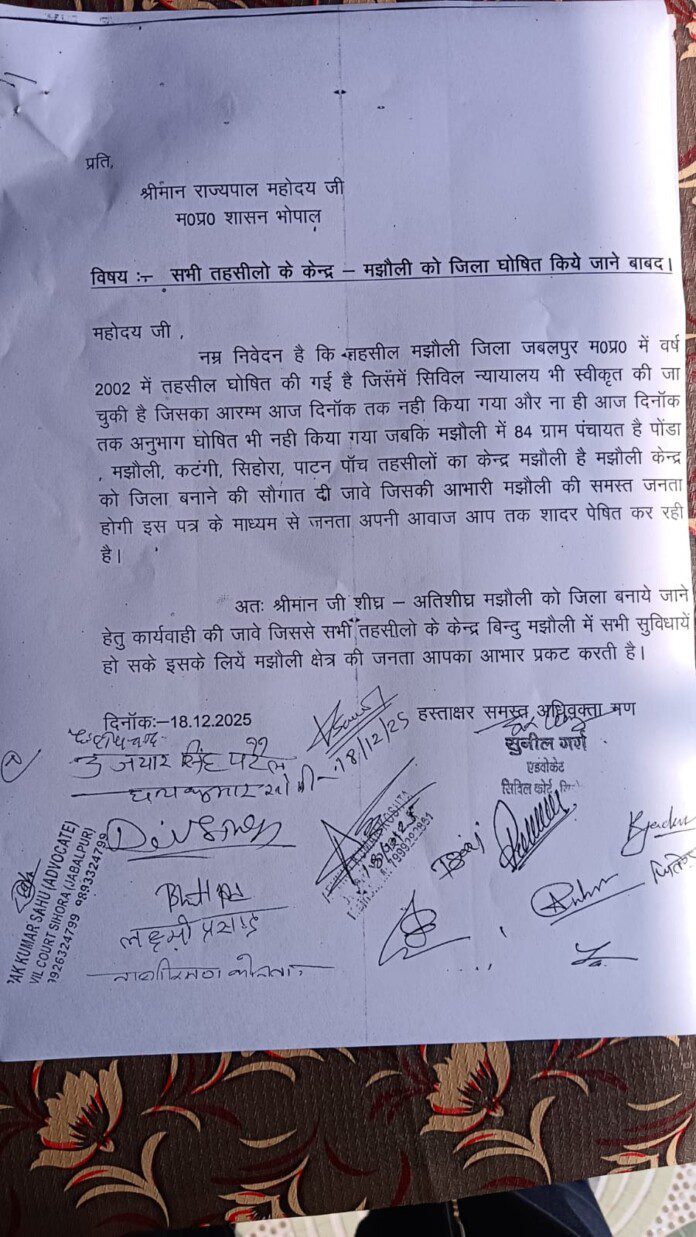 प्रति,
श्रीमान राज्यपाल महोदय जी
म0प्र0 शासन भोपाल
विषय :– सभी तहसीलो के केन्द्र – मझौली को जिला घोषित किये जाने बाबद।
महोदय जी ,
नम्र निवेदन है कि तहसील मझौली जिला जबलपुर म0प्र0 में वर्ष
2002 में तहसील घोषित की गई है जिसमें सिविल न्यायालय भी स्वीकृत की जा
चुकी है जिसका आरम्भ आज दिनॉक तक नही किया गया और ना ही आज दिनॉक
तक अनुभाग घोषित भी नही किया गया जबकि मझौली में 84 ग्राम पंचायत है पोंडा
, मझौली, कटंगी, सिहोरा, पाटन पॉच तहसीलों का केन्द्र मझौली है मझौली केन्द्र
को जिला बनाने की सौगात दी जावे जिसकी आभारी मझौली की समस्त जनता
होगी इस पत्र के माध्यम से जनता अपनी आवाज आप तक शादर पेषित कर रही
है।
अतः श्रीमान जी शीघ्र – अतिशीघ्र मझौली को जिला बनाये जाने
हेतु कार्यवाही की जावे जिससे सभी तहसीलो के केन्द्र बिन्दु मझौली में सभी सुविधायें
हो सके इसके लिये मझौली क्षेत्र की जनता आपका आभार प्रकट करती है।
दिनॉक:–18.12.2025
हस्ताक्षर समस्त अधिवक्ता गण
18/12/25
सुनील गर्ग
एडवोकेट
सिविल कोर्ट
सिंह पटेल
लक्ष्मी प्रसाद
KUMAR SAHU (ADVOCATE)
VIL COURT SIHORA (JABALPUR)
9926324799 9893324799